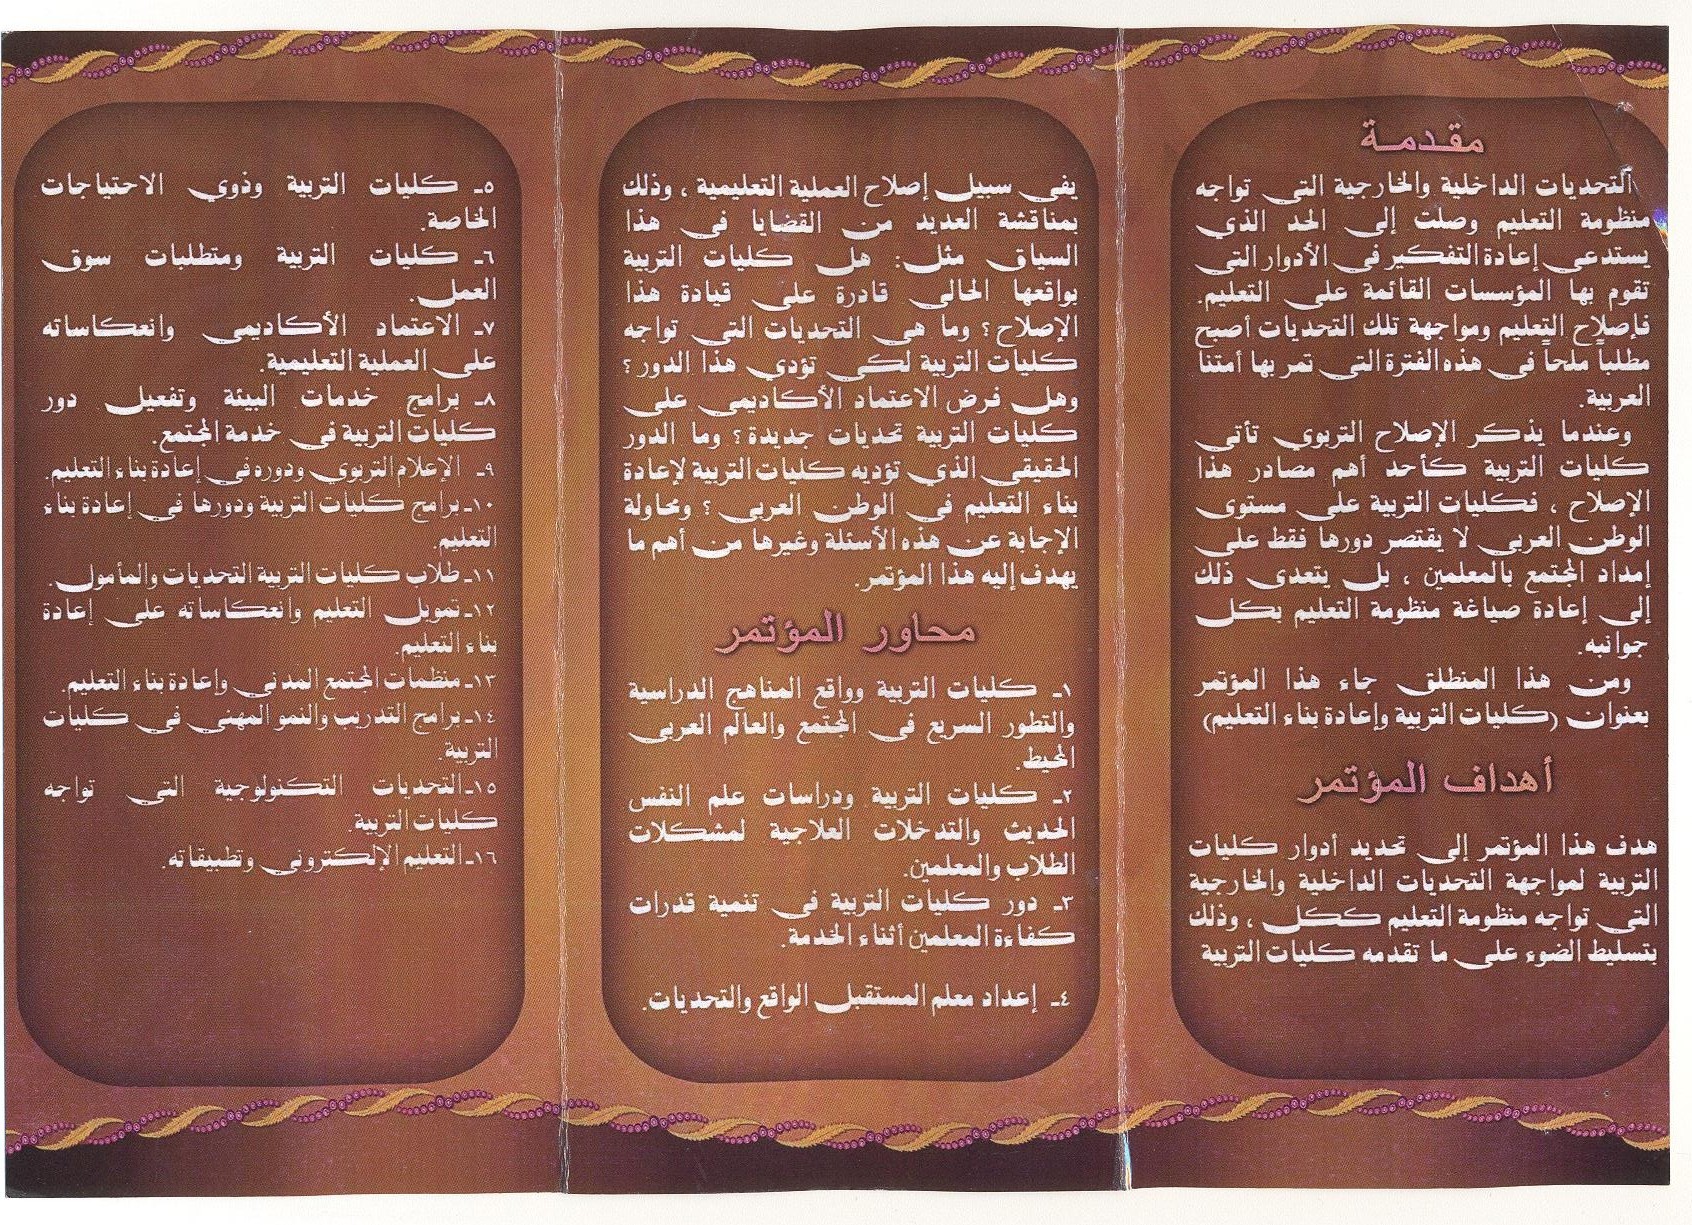 مقدمة
التحديات الداخلية والخارجية التي تواجه
منظومة التعليم وصلت إلى الحد الذي
يستدعى إعادة التفكير فى الأدوار التى
تقوم بها المؤسسات القائمة على التعليم.
فإصلاح التعليم ومواجهة تلك التحديات أصبح
مطلباً ملحاً فى هذه الفترة التى تمر بها أمتنا
العربية.
وعندما يذكر الإصلاح التربوي تأتي
كليات التربية كأحد أهم مصادر هذا
الإصلاح ، فكليات التربية على مستوى
الوطن العربي لا يقتصر دورها فقط على
إمداد المجتمع بالمعلمين ، بل يتعدى ذلك
إلى إعادة صياغة منظومة التعليم بكل
جوانبه.
ومن هذا المنطلق جاء هذا المؤتمر
بعنوان (كليات التربية وإعادة بناء التعليم)
أهداف المؤتمر
هدف هذا المؤتمر إلى تحديد أدوار كليات
التربية لمواجهة التحديات الداخلية والخارجية
التي تواجه منظومة التعليم ككل ، وذلك
بتسليط الضوء على ما تقدمه كليات التربية
يفي سبيل إصلاح العملية التعليمية ، وذلك
بمناقشة العديد من القضايا فى هذا
السياق مثل: هل كليات التربية
بواقعها الحالى قادرة على قيادة هذا
الإصلاح ؟ وما هى التحديات التى تواجه
كليات التربية لكى تؤدي هذا الدور ؟
وهل فرض الاعتماد الأكاديمى على
كليات التربية تحديات جديدة ؟ وما الدور
الحقيقي الذي تؤديه كليات التربية لإعادة
بناء التعليم في الوطن العربي ؟ ومحاولة
الإجابة عن هذه الأسئلة وغيرها من أهم ما
يهدف إليه هذا المؤتمر.
محاور المؤتمر
١ـ كليات التربية وواقع المناهج الدراسية
والتطور السريع فى المجتمع والعالم العربي
المحيط.
٢ـ كليات التربية ودراسات علم النفس
الحديث والتدخلات العلاجية لمشكلات
الطلاب والمعلمين.
٣ـ دور كليات التربية فى تنمية قدرات
كفاءة المعلمين أثناء الخدمة.
٤ـ إعداد معلم المستقبل الواقع والتحديات.
٥ـ كليات التربية وذوي الاحتياجات
الخاصة.
٦ـ كليات التربية ومتطلبات سوق
العمل.
٧ـ الاعتماد الأكاديمى وانعكاساته
على العملية التعليمية.
٨ـ برامج خدمات البيئة وتفعيل دور
كليات التربية فى خدمة المجتمع.
٩ـ الإعلام التربوي ودوره في إعادة بناء التعليم.
١٠ـ برامج كليات التربية ودورها في إعادة بناء
التعليم.
١١ـ طلاب كليات التربية التحديات والمأمول.
١٢ـ تمويل التعليم وانعكاساته على إعادة
بناء التعليم.
١٣ـ منظمات المجتمع المدني وإعادة بناء التعليم.
١٤ـ برامج التدريب والنمو المهني في كليات
التربية.
١٥ـ التحديات التكنولوجية التي تواجه
كليات التربية.
١٦ـ التعليم الإلكتروني وتطبيقاته.